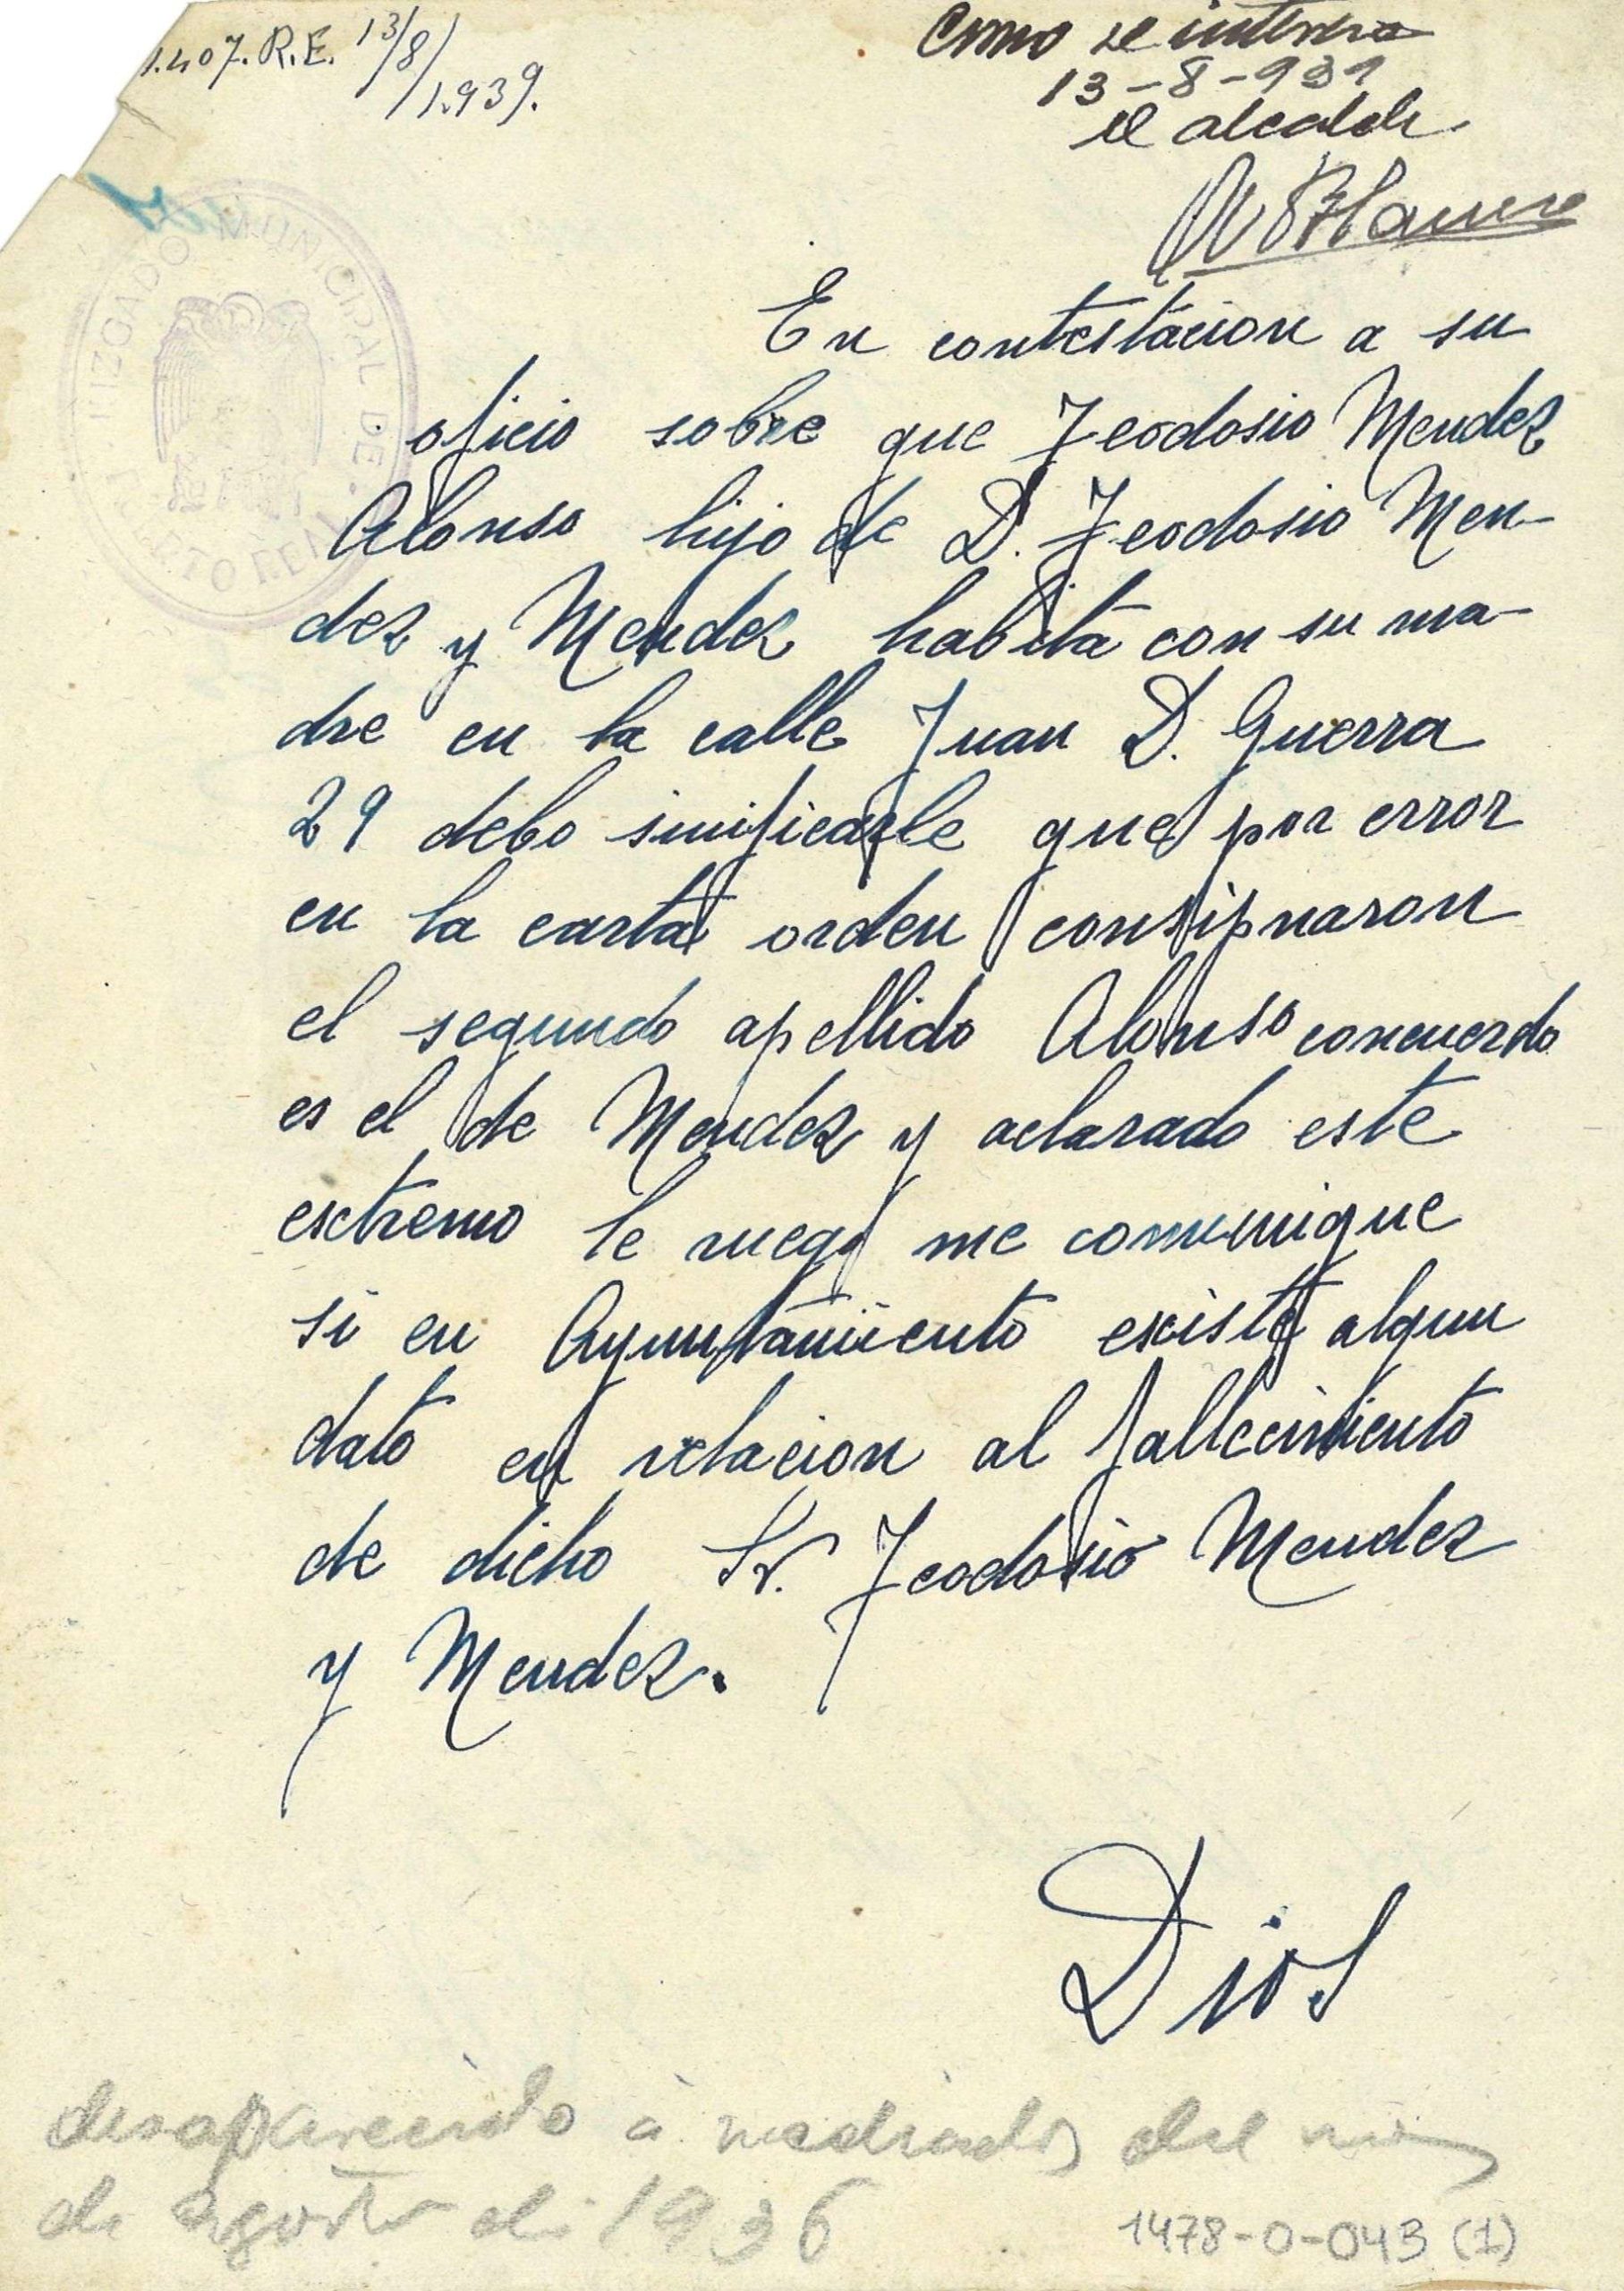 1.407. R.E. 13/8/1.939.
Como se interesa
13-8-939
el alcalde
JUZGADO MUNICIPAL DE
PUERTO REAL
En contestacion a su
oficio sobre que Teodosio Mendez
Alonso hijo de D. Teodosio Men-
dez y Mendez habita con su ma-
dre en la calle Juan D. Guerra
29 debo sinificarle que por error
en la carta orden consignaron
el segundo apellido Alonso concuerdo
es el de Mendez y aclarado este
extremo le ruego me comunique
si en Ayuntamiento existe algun
dato en relacion al fallecimiento
de dicho Sr. Teodosio Mendez
y Mendez.
Dios
desaparecido à mediados del mes
de agosto de 1936
1478-0-043 (1)